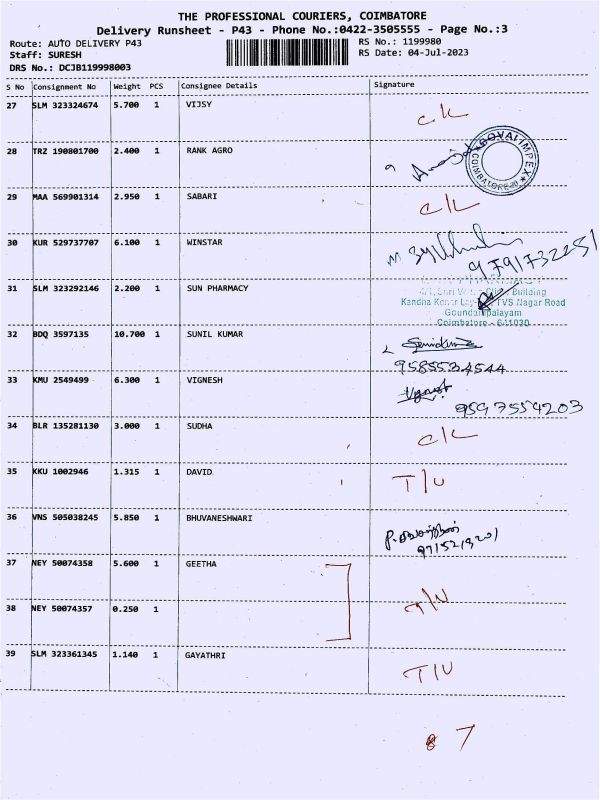 THE PROFESSIONAL COURIERS, COIMBATORE
Delivery Runsheet - P43 - Phone No.:0422-3505555 - Page No.:3
Route: AUTO DELIVERY P43 RS No.: 1199980
Staff: SURESH RS Date: 04-Jul-2023
DRS No.: DCJB119998003
S No Consignment No Weight PCS Consignee Details Signature
27 SLM 323324674 5.700 1 VIJSY C/L
28 TRZ 190801700 2.400 1 RANK AGRO
KOVAI IMPEX
COIMBATORE
29 MAA 569901314 2.950 1 SABARI C/L
30 KUR 529737707 6.100 1 WINSTAR
9791732251
31 SLM 323292146 2.200 1 SUN PHARMACY
Building
Kandha TVS Nagar Road
Goundampalayam
Coimbatore - 641030
32 BDQ 3597135 10.700 1 SUNIL KUMAR
9585534544
33 KMU 2549499 6.300 1 VIGNESH
9597554203
34 BLR 135281130 3.000 1 SUDHA C/L
35 KKU 1002946 1.315 1 DAVID T/U
36 VNS 505038245 5.850 1 BHUVANESHWARI
9715219201
37 NEY 50074358 5.600 1 GEETHA
T/U
38 NEY 50074357 0.250 1
39 SLM 323361345 1.140 1 GAYATHRI T/U
7